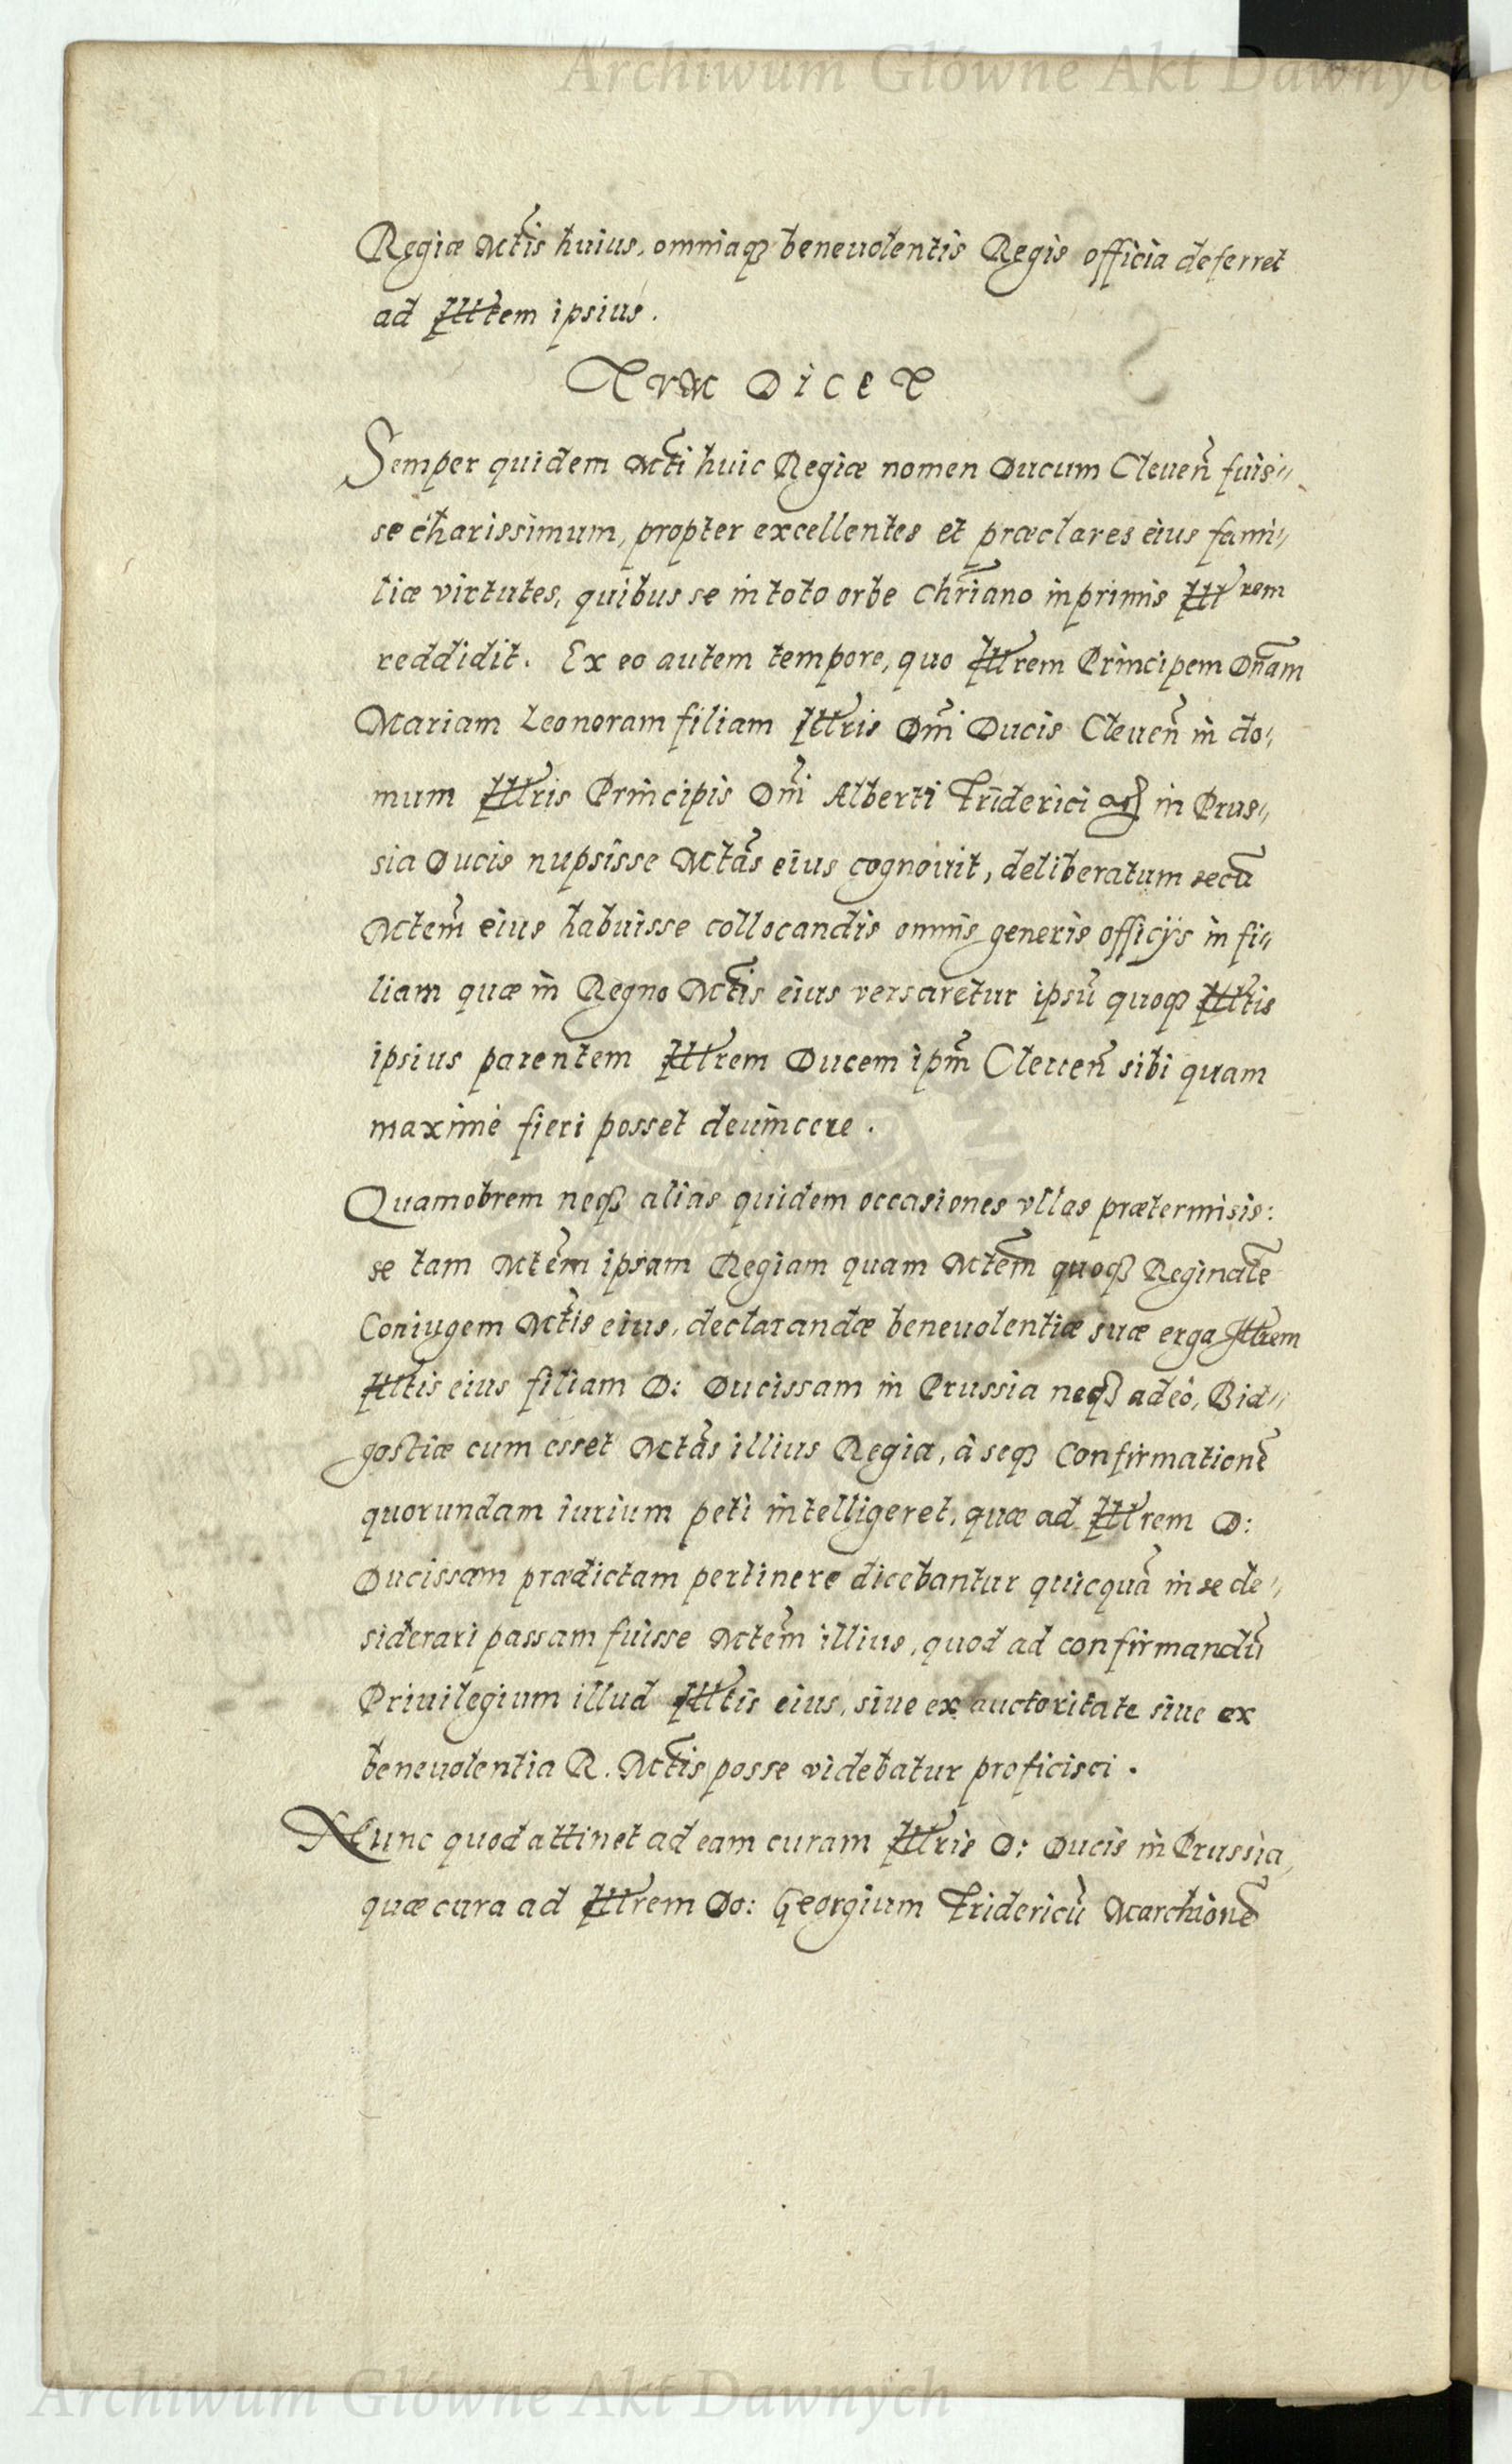 Archiwum Główne Akt Dawnych
Regiæ Mtis huius, omniaq beneuolentis Regis officia deferret
ad Illtem ipsius.
TVM DICET
Semper quidem Mti huic Regiæ nomen Ducum Cleuen̄ fuis„
se charissimum, propter excellentes et præclares eius fami„
liæ virtutes, quibus se in toto orbe Chriāno inprimis Illrem
reddidit. Ex eo autem tempore, quo Illrem Principem Dn̄am
Mariam Leonoram filiam Illris Dn̄i Ducis Cleuen̄ in do„
mum Illris Principis Dn̄i Alberti Friderici in Prus„
sia Ducis nupsisse Mtas eius cognouit, deliberatum secū
Mtem eius habuisse collocandis omnis generis officijs in fi„
liam quæ in Regno Mtis eius versaretur ipsū quoq Illtis
ipsius parentem Illrem Ducem ipm̄ Cleuen̄ sibi quam
maximè fieri posset deuincere.
Quamobrem neq alias quidem occasiones vllas prætermisis:
se tam Mtem ipsam Regiam quam Mtem quoq Reginalē
Coniugem Mtis eius, declarandæ beneuolentiæ suæ erga Illrem
Illtis eius filiam D: Ducissam in Prussia neq adeò, Bid„
gostiæ cum esset Mtas illius Regia, à seq Confirmationē
quorundam iurium peti intelligeret, quæ ad Illrem D:
Ducissam prædictam pertinere dicebantur quicquā in se de„
siderari passam fuisse Mtem illius, quod ad confirmandū
Priuilegium illud Illtis eius, siue ex auctoritate siue ex
beneuolentia R. Mtis posse videbatur proficisci.
Nunc quod attinet ad eam curam Illris D: Ducis in Prussia,
quæ cura ad Illrem Do: Georgium Fridericū Marchionē
Archiwum Główne Akt Dawnych